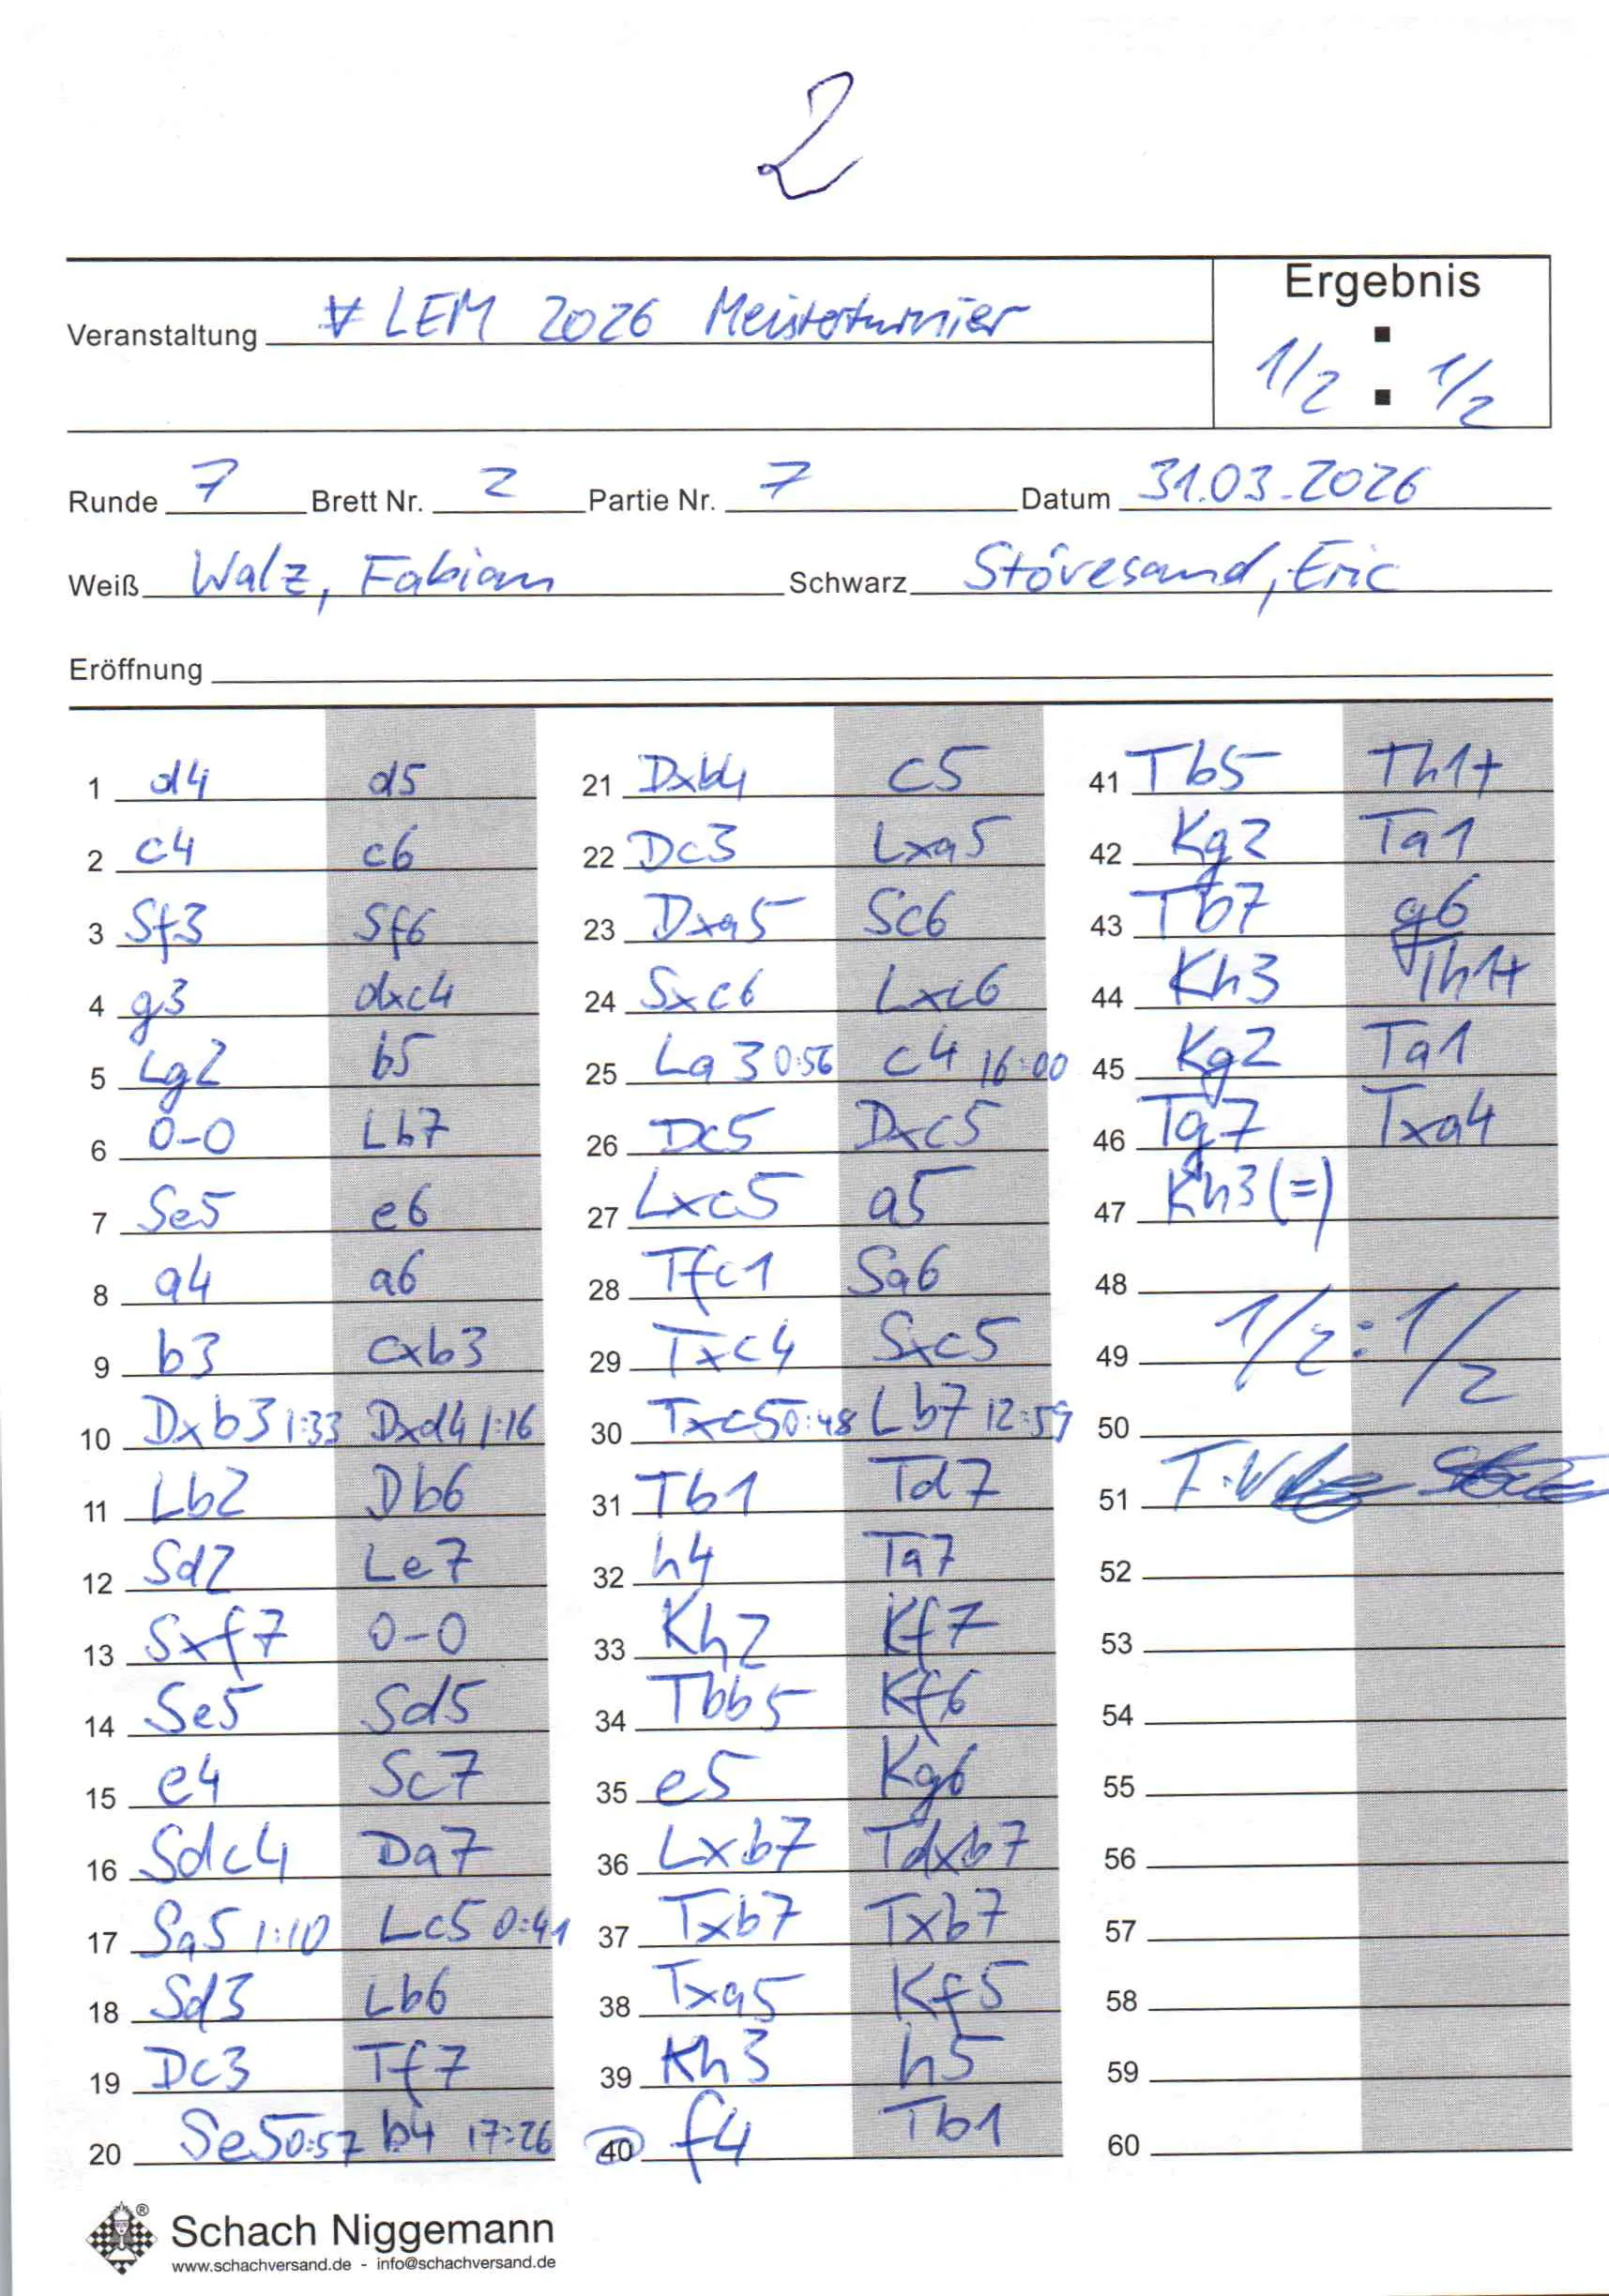 2
Veranstaltung LEM 2026 Meisterturnier
Ergebnis
1/2 : 1/2
Runde 7 Brett Nr. 2 Partie Nr. 7 Datum 31.03.2026
Weiß Walz, Fabian Schwarz Stövesand, Eric
Eröffnung
1 d4 d5
2 c4 c6
3 Sf3 Sf6
4 g3 dxc4
5 Lg2 b5
6 0-0 Lb7
7 Se5 e6
8 a4 a6
9 b3 cxb3
10 Dxb3 1:33 Dxd4 1:16
11 Lb2 Db6
12 Sd2 Le7
13 Sxf7 0-0
14 Se5 Sd5
15 e4 Sc7
16 Sdc4 Da7
17 Sa5 1:10 Lc5 0:41
18 Sd3 Lb6
19 Dc3 Tf7
20 Se5 0:57 b4 17:26
21 Dxb4 c5
22 Dc3 Lxa5
23 Dxa5 Sc6
24 Sxc6 Lxc6
25 La3 0:56 c4 16:00
26 Dc5 Dxc5
27 Lxc5 a5
28 Tfc1 Sa6
29 Txc4 Sxc5
30 Txc5 0:48 Lb7 12:59
31 Tb1 Td7
32 h4 Ta7
33 Kh2 Kf7
34 Tbb5 Kf6
35 e5 Kg6
36 Lxb7 Tdxb7
37 Txb7 Txb7
38 Txa5 Kf5
39 Kh3 h5
40 f4 Tb1
41 Tb5 Th1+
42 Kg2 Ta1
43 Tb7 g6
44 Kh3 Th1+
45 Kg2 Ta1
46 Tg7 Txa4
47 Kh3 (=)
48
49 1/2 : 1/2
50
51
52
53
54
55
56
57
58
59
60
® Schach Niggemann
www.schachversand.de - info@schachversand.de